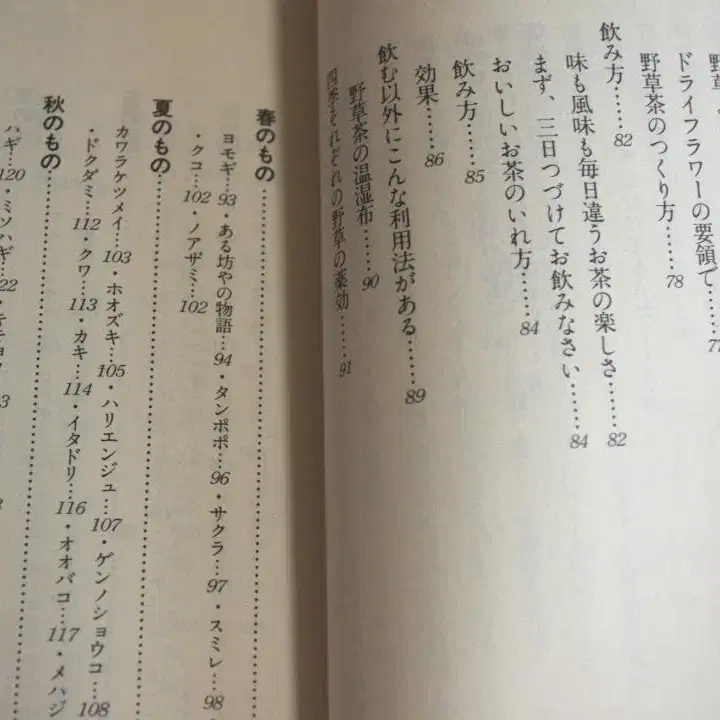 ドライフラワーの要領で……77
野草茶のつくり方……78
飲み方……82
味も風味も毎日違うお茶の楽しさ……82
まず、三日つづけてお飲みなさい……84
おいしいお茶のいれ方……84
飲み方……85
効果……86
飲む以外にこんな利用法がある……89
野草茶の温湿布……90
四季それぞれの野草の薬効……91
春のもの……
ヨモギ…93・ある坊やの物語…94・タンポポ…96・サクラ…97・スミレ…98
・クコ…102・ノアザミ…102
夏のもの……
カワラケツメイ…103・ホオズキ…105・ハリエンジュ…107・ゲンノショウコ…108
・ドクダミ…112・クワ…113・カキ…114・イタドリ…116・オオバコ…117・メハジ
秋のもの……
ハギ…120・ミソハギ…